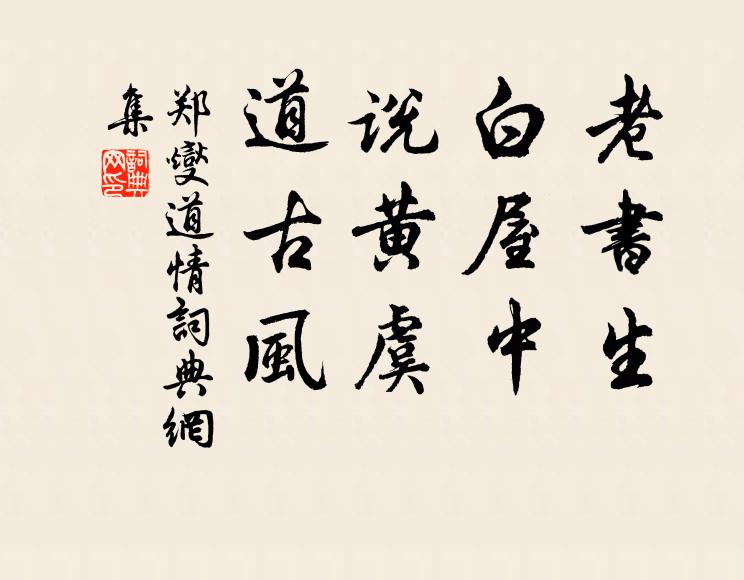 老書生
白屋中
说黄虞
道古風
郑燮道情詞典網
集
詞典网印